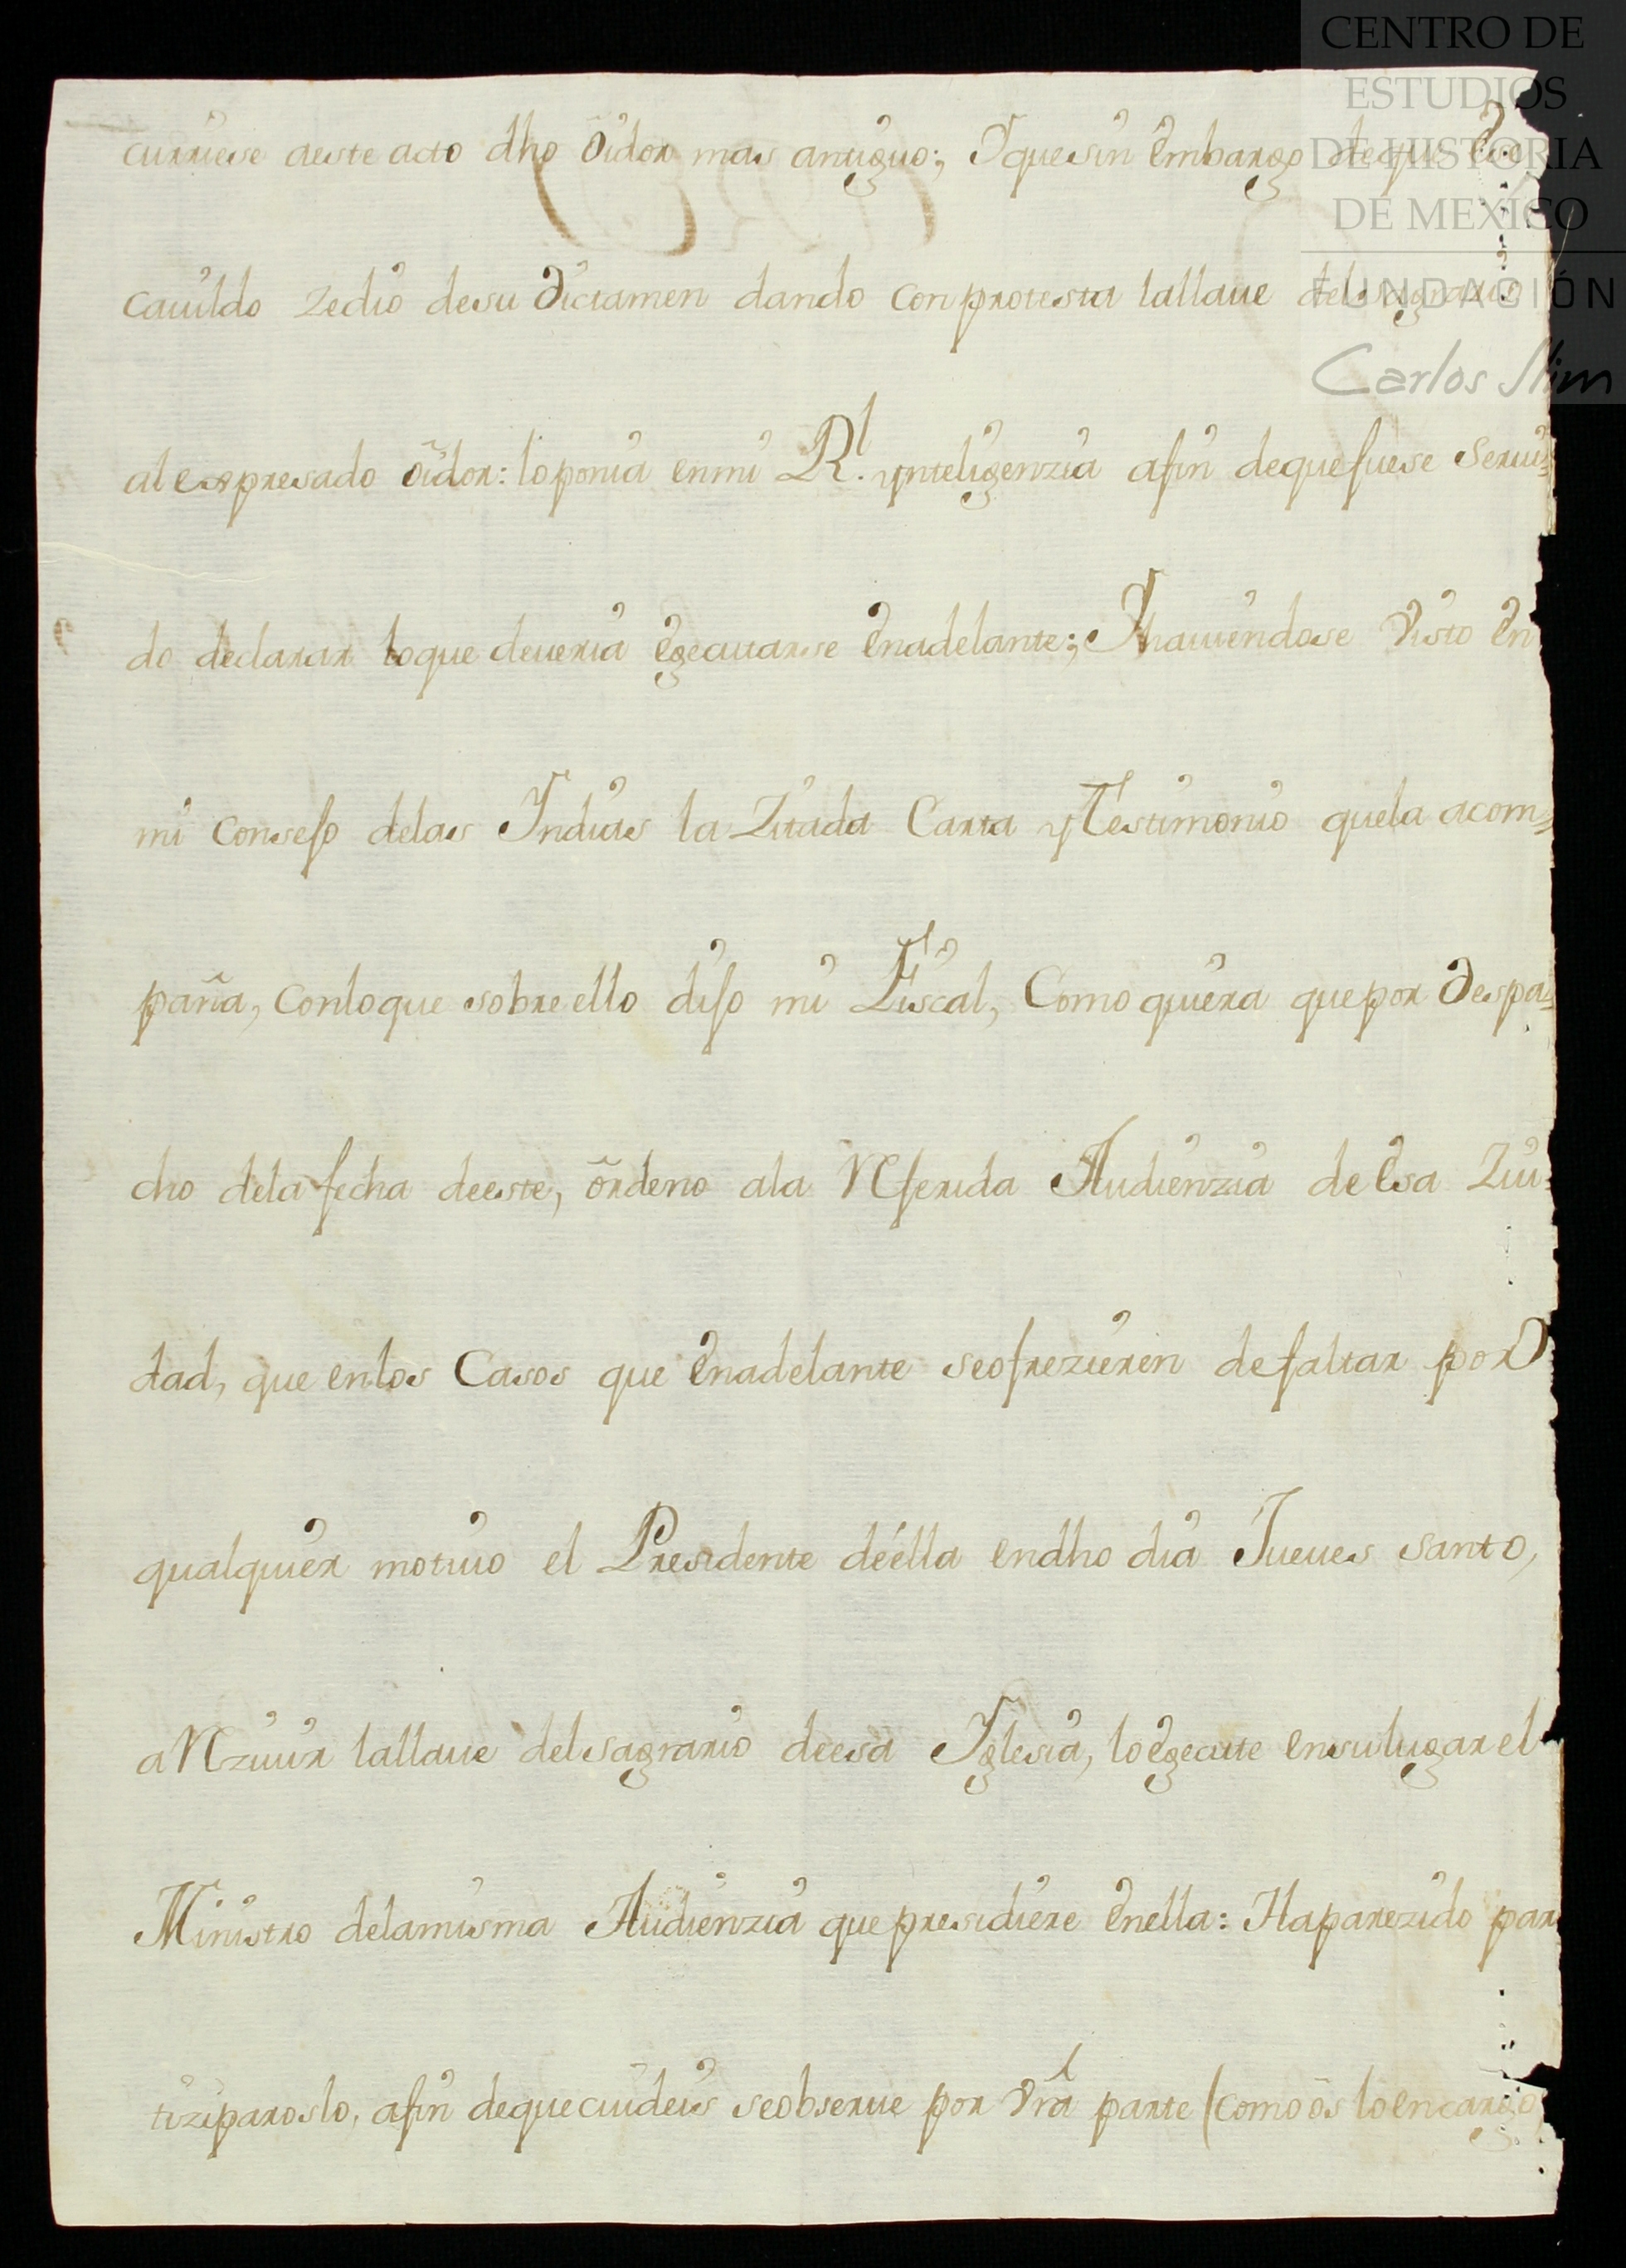 curriese aeste acto dho Oidor mas antiguo; Yquesin Embargo deque Ese
Cauildo Zedio desu Dictamen dando con protesta lallaue del sagrario
al expresado oidor: loponia enmi Rl. ynteligenzia afin dequefuese Serui=
do declarar loque deueria Egecutarse Enadelante; Yhauiendose Visto En
mi Consejo delas Indias la Zitada Carta yTestimonio quela acom=
paña, Conloque sobreello dijo mi Fiscal, Como quiera quepor Despa=
cho dela fecha deeste, ordeno ala Referida Audienzia de Esa Ziu=
dad, que enlos Casos que Enadelante seofrezieren defaltar por
qualquier motiuo el Presidente deella endho dia Jueues santo,
aReziuir lallaue delsagrario deesa Iglesia, loEgecute ensulugar el
Ministro delamisma Audienzia quepresidiere Enella: Haparezido par
tiziparoslo, afin dequecuideis seobserue por Vra parte (como os loencargo
CENTRO DE
ESTUDIOS
DE HISTORIA
DE MEXICO
FUNDACIÓN
Carlos Slim